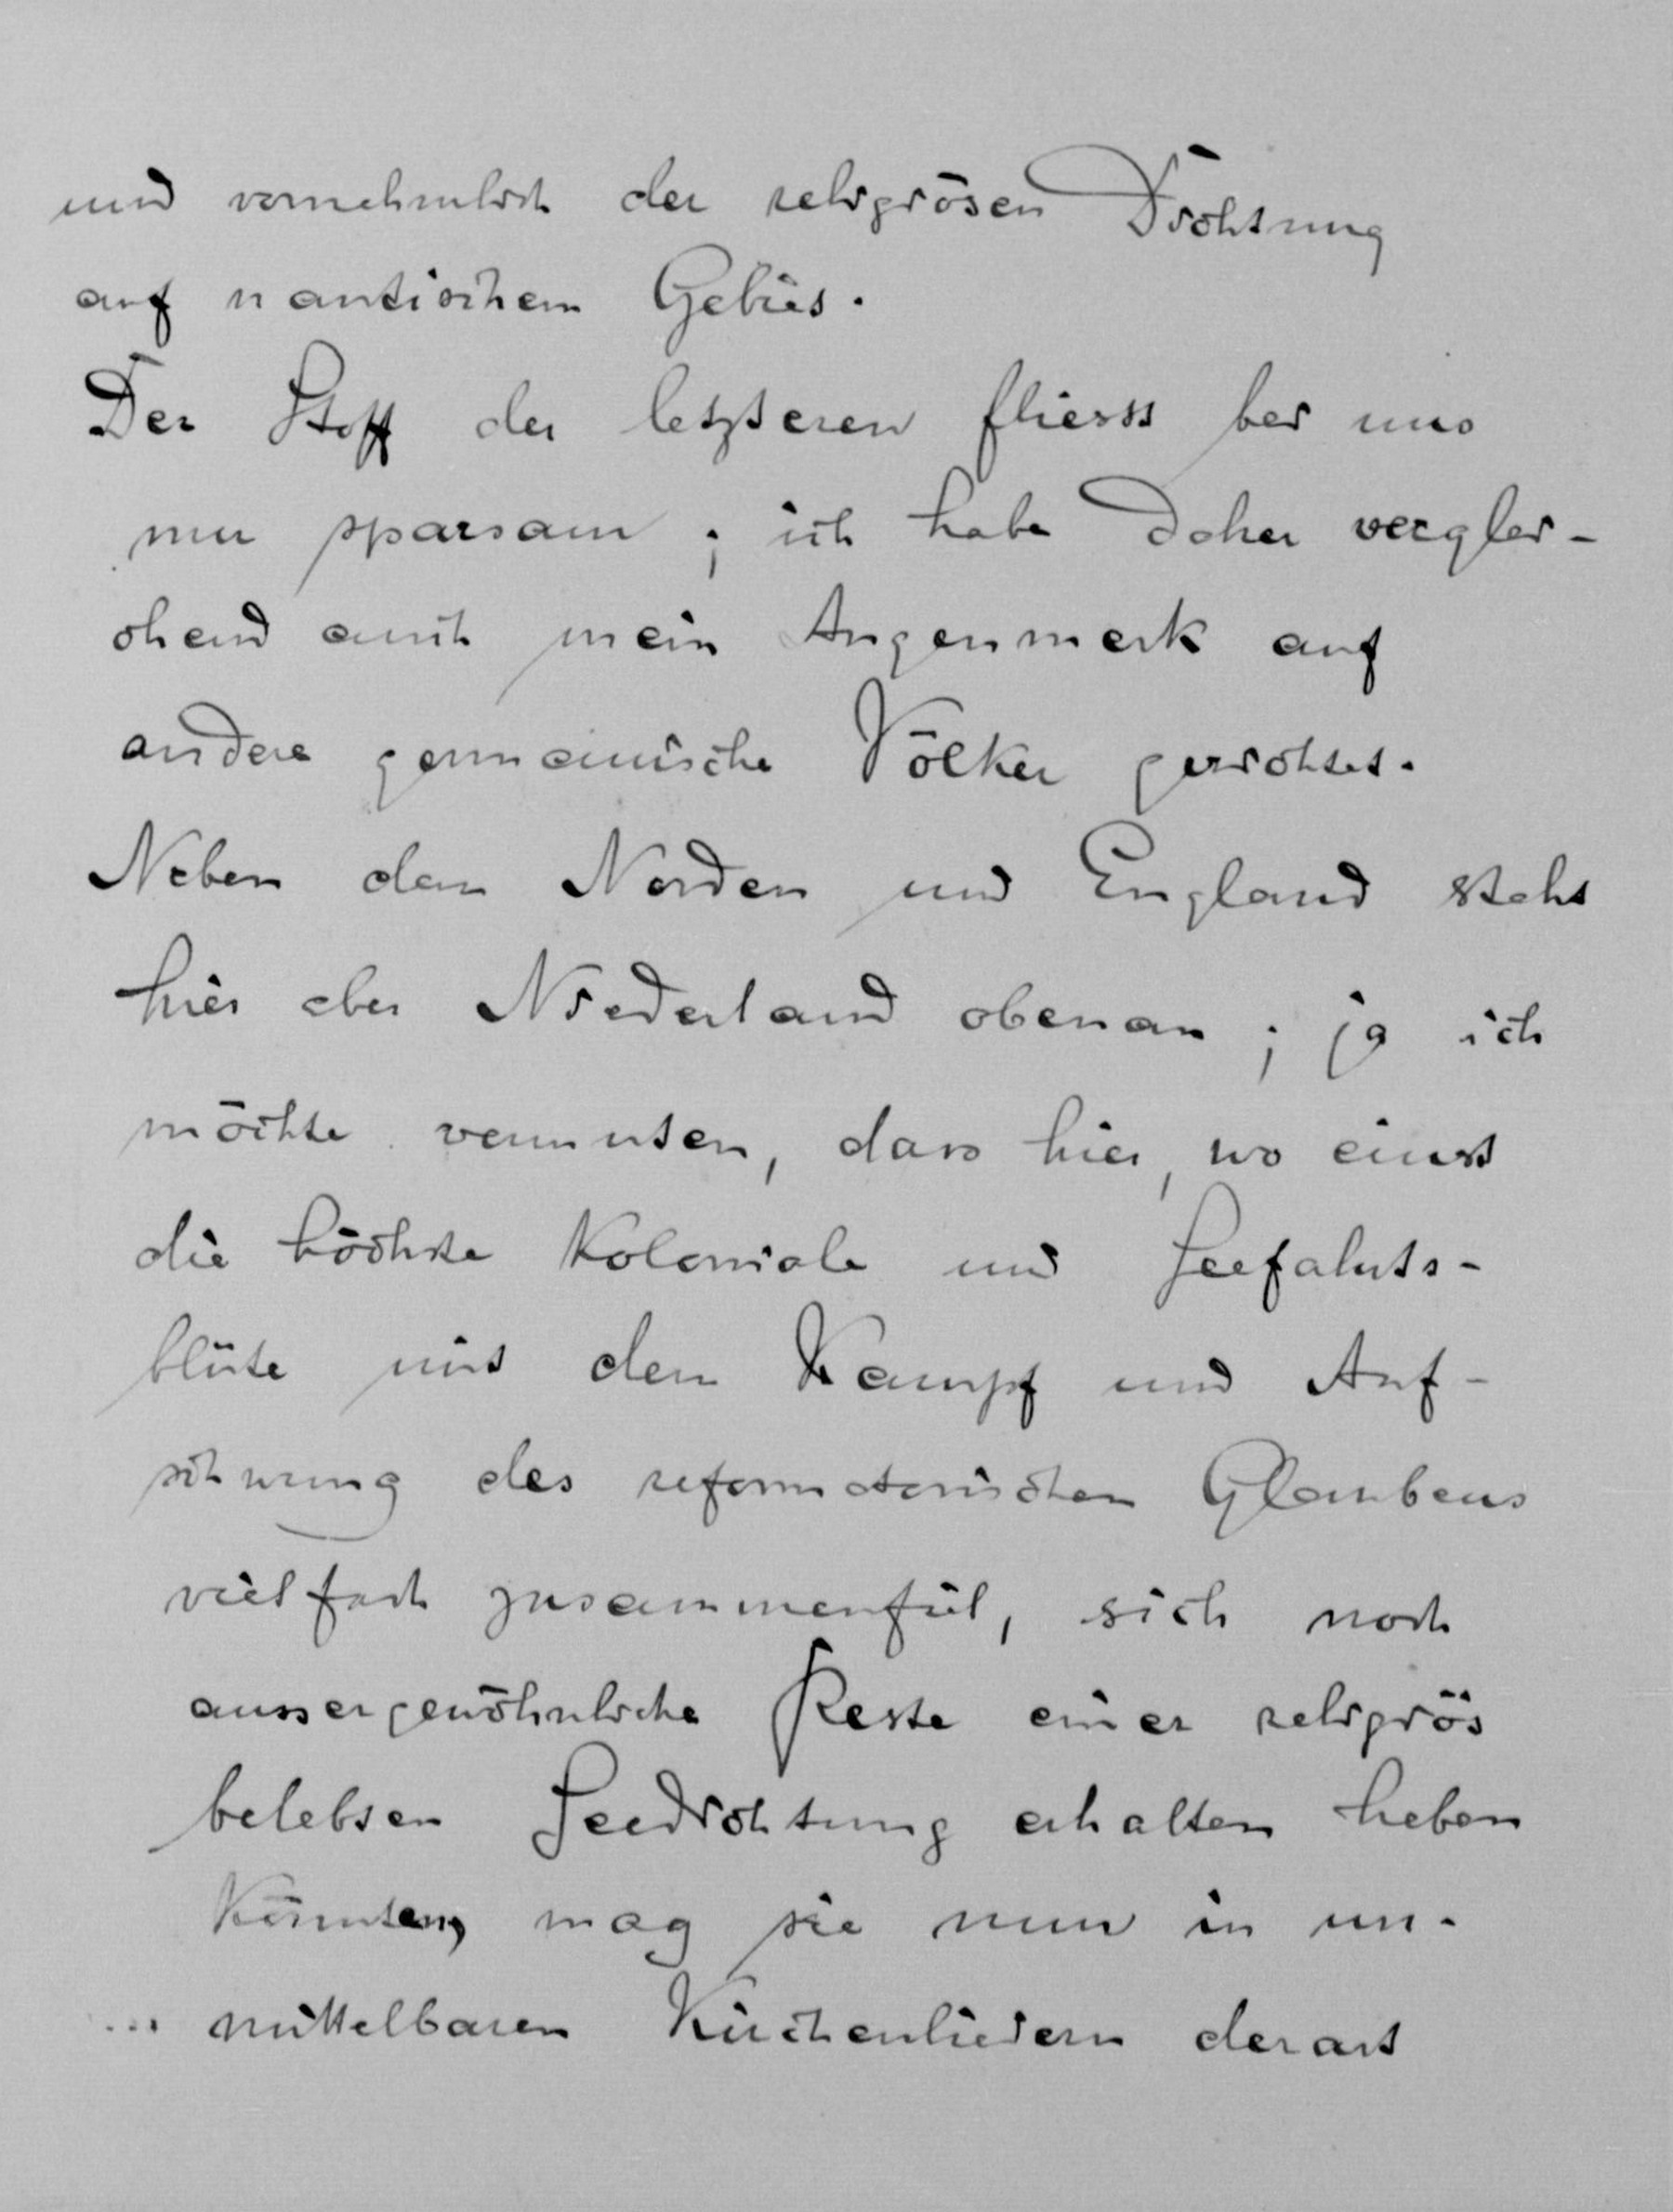 und vornehmlich der religiösen Dichtung
auf nautischem Gebiet.
Der Stoff der letzteren fliesst bei uns
nur sparsam; ich habe daher verglei-
chend auch mein Augenmerk auf
andere germanische Völker gerichtet.
Neben dem Norden und England steht
hier aber Niederland obenan; ja ich
möchte vermuten, dass hier, wo einst
die höchste Koloniale und Seefahrts-
blüte mit dem Kampf und Auf-
schwung des reformatorischen Glaubens
vielfach zusammenfiel, sich noch
aussergewöhnliche Reste einer religiös
belebten Seedichtung erhalten haben
könnten, mag sie nun in un-
mittelbaren Kirchenliedern derart